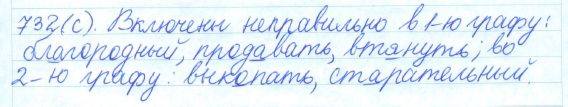 732(с). Включены неправильно в 1-ю графу:
благородный, продавать, втянуть; во
2-ю графу: выкопать, старательный.